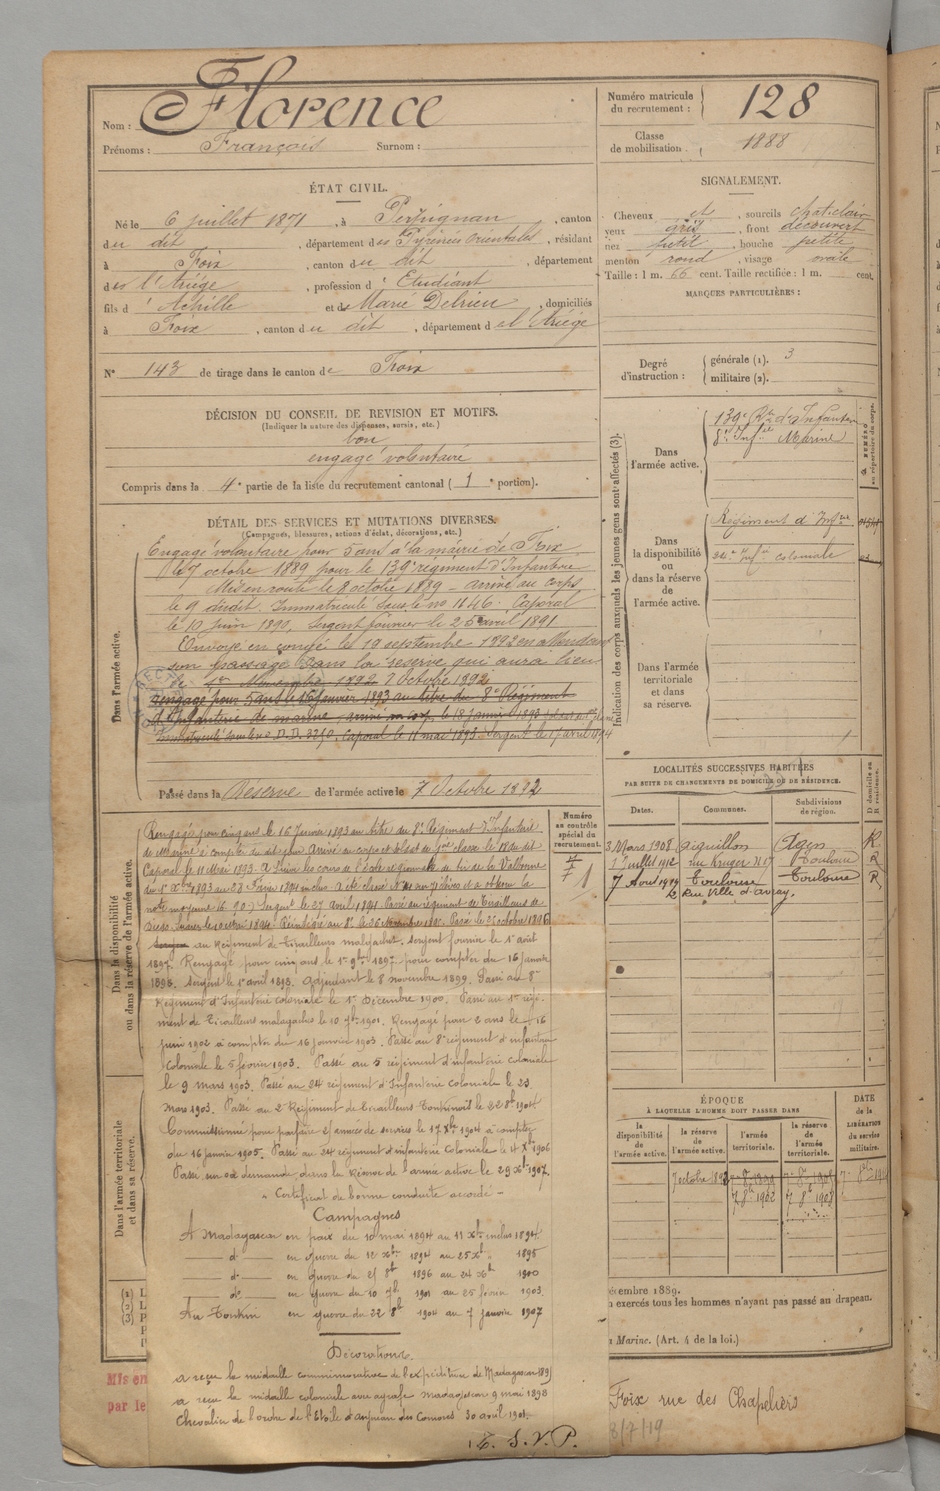 Nom : Florence
Prénoms : François Surnom :
Numéro matricule du recrutement : 128
Classe de mobilisation : 1888
ÉTAT CIVIL.
Né le 6 juillet 1871, à Perpignan, canton
du dit, département des Pyrénées Orientales, résidant
à Foix, canton du dit, département
de l'Ariège, profession d'Etudiant
fils d'Achille et de Marie Delrieu, domiciliés
à Foix, canton du dit, département de l'Ariège
N° 143 de tirage dans le canton de Foix
SIGNALEMENT.
Cheveux et, sourcils chat. clair
yeux gris, front découvert
nez petit, bouche petite
menton rond, visage ovale
Taille : 1 m. 66 cent. Taille rectifiée : 1 m. cent.
MARQUES PARTICULIÈRES :
Degré d'instruction : générale (1). 3
militaire (2).
DÉCISION DU CONSEIL DE REVISION ET MOTIFS.
(Indiquer la nature des dispenses, sursis, etc.)
bon
engagé volontaire
Compris dans la 4e partie de la liste du recrutement cantonal ( 1 e portion).
DÉTAIL DES SERVICES ET MUTATIONS DIVERSES.
(Campagnes, blessures, actions d'éclat, décorations, etc.)
Dans l'armée active.
Engagé volontaire pour 5 ans à la mairie de Foix
le 7 octobre 1889 pour le 139e régiment d'Infanterie
Mis en route le 8 octobre 1889 - arrivé au corps
le 9 dudit. Immatriculé sous le no 1846. Caporal
le 10 juin 1890. Sergent fourrier le 25 avril 1891
Envoyé en congé le 19 septembre 1892 en attendant
son passage dans la réserve qui aura lieu
le 1er Novembre 1892 7 Octobre 1892
Rengagé pour 5 ans le 16 janvier 1893 au titre du 8e Régiment
d'Infanterie de marine, arrivé au corps le 18 janvier 1893
Immatriculé sous le no Caporal le 11 mai 1893. Sergent le 1er avril 1894
Passé dans la Réserve de l'armée active le 7 Octobre 1892
Indication des corps auxquels les jeunes gens sont affectés (3).
NUMÉRO au répertoire du corps.
Dans l'armée active.
139e Rt d'Infanterie
8e Infrie Marine
Dans la disponibilité ou dans la réserve de l'armée active.
Régiment d'Infrie
22e Infie coloniale
Dans l'armée territoriale et dans sa réserve.
LOCALITÉS SUCCESSIVES HABITÉES
PAR SUITE DE CHANGEMENTS DE DOMICILE OU DE RÉSIDENCE.
Dates. Communes. Subdivisions de région. D domicile ou R résidence.
3 Mars 1908 Aiguillon Agen R
1er Juillet 1912 rue Kruger n° 17 Toulouse R
7 Aout 1919 Toulouse Toulouse R
2 Rue Ville d'avray.
Numéro au contrôle spécial du recrutement.
Dans la disponibilité ou dans la réserve de l'armée active.
Rengagé pour cinq ans le 16 Janvier 1893 au titre du 8e Régiment d'Infanterie
de Marine à compter du dit jour. Arrivé au corps et soldat de 1ère classe le 18 du dit
Caporal le 11 Mai 1893. A suivi les cours de l'école régionale de tir de la Valbonne
du 1er Xbre 1893 au 28 Février 1894 inclus. A été classé sur 71 élèves et a obtenu la
note moyenne 16.90. Sergent le 27 avril 1894. Passé au régiment de Tirailleurs de
Diego-Suarez le 10 Mai 1894. Réintégré au 8e le 26 Novembre Passé le 25 octobre 1896
au Régiment de Tirailleurs malgaches. Sergent fourrier le 1er août
1897. Rengagé pour cinq ans le 1er 9bre 1897 pour compter du 16 janvier
1898. Sergent le 1er avril 1898. Adjudant le 8 novembre 1899. Passé au 8e
Régiment d'Infanterie coloniale le 1er Décembre 1900. Passé au 1er régi-
ment de Tirailleurs malgaches le 10 7bre 1901. Rengagé pour 2 ans le 16
juin 1902 à compter du 16 janvier 1903. Passé au 8e régiment d'infanterie
coloniale le 5 février 1903. Passé au 5 régiment d'infanterie coloniale
le 9 mars 1903. Passé au 24 régiment d'Infanterie coloniale le 23
Mars 1903. Passé au 2e Régiment de Tirailleurs Tonkinois le 22 8bre 1904
Commissionné pour parfaire 25 années de services le 17 Xbre 1904 à compter
du 16 janvier 1905. Passé au 24 régiment d'infanterie Coloniale le 4 Xbre 1906
Passé, sur sa demande, dans la Réserve de l'armée active le 29 Xbre 1907.
« Certificat de bonne conduite accordé »
Campagnes
A Madagascar en paix du 10 mai 1894 au 11 Xbre inclus 1894.
— do — en guerre du 12 Xbre 1894 au 25 Xbre 1895
— do — en guerre du 25 8bre 1896 au 24 Xbre 1900
— do — en guerre du 10 7bre 1901 au 25 février 1903.
Au Tonkin en guerre du 22 8bre 1904 au 7 janvier 1907
Décorations.
a reçu la médaille commémorative de l'expédition de Madagascar 1895
a reçu la médaille coloniale avec agrafe Madagascar 9 mai 1898
Chevalier de l'ordre de l'Etoile d'Anjouan des Comores 30 avril 1901.
T. S. V. P.
Dans l'armée territoriale et dans sa réserve.
ÉPOQUE
À LAQUELLE L'HOMME DOIT PASSER DANS
la disponibilité de l'armée active. la réserve de l'armée active. l'armée territoriale. la réserve de l'armée territoriale. DATE de la LIBÉRATION du service militaire.
7 octobre 1892 7 8bre 1899 7 8bre 1905
7 8bre 1902 7 8bre 1908
écembre 1889.
n exercés tous les hommes n'ayant pas passé au drapeau.
Marine. (Art. 4 de la loi.)
Mis en
par le
Foix rue des Chapeliers
8/7/19